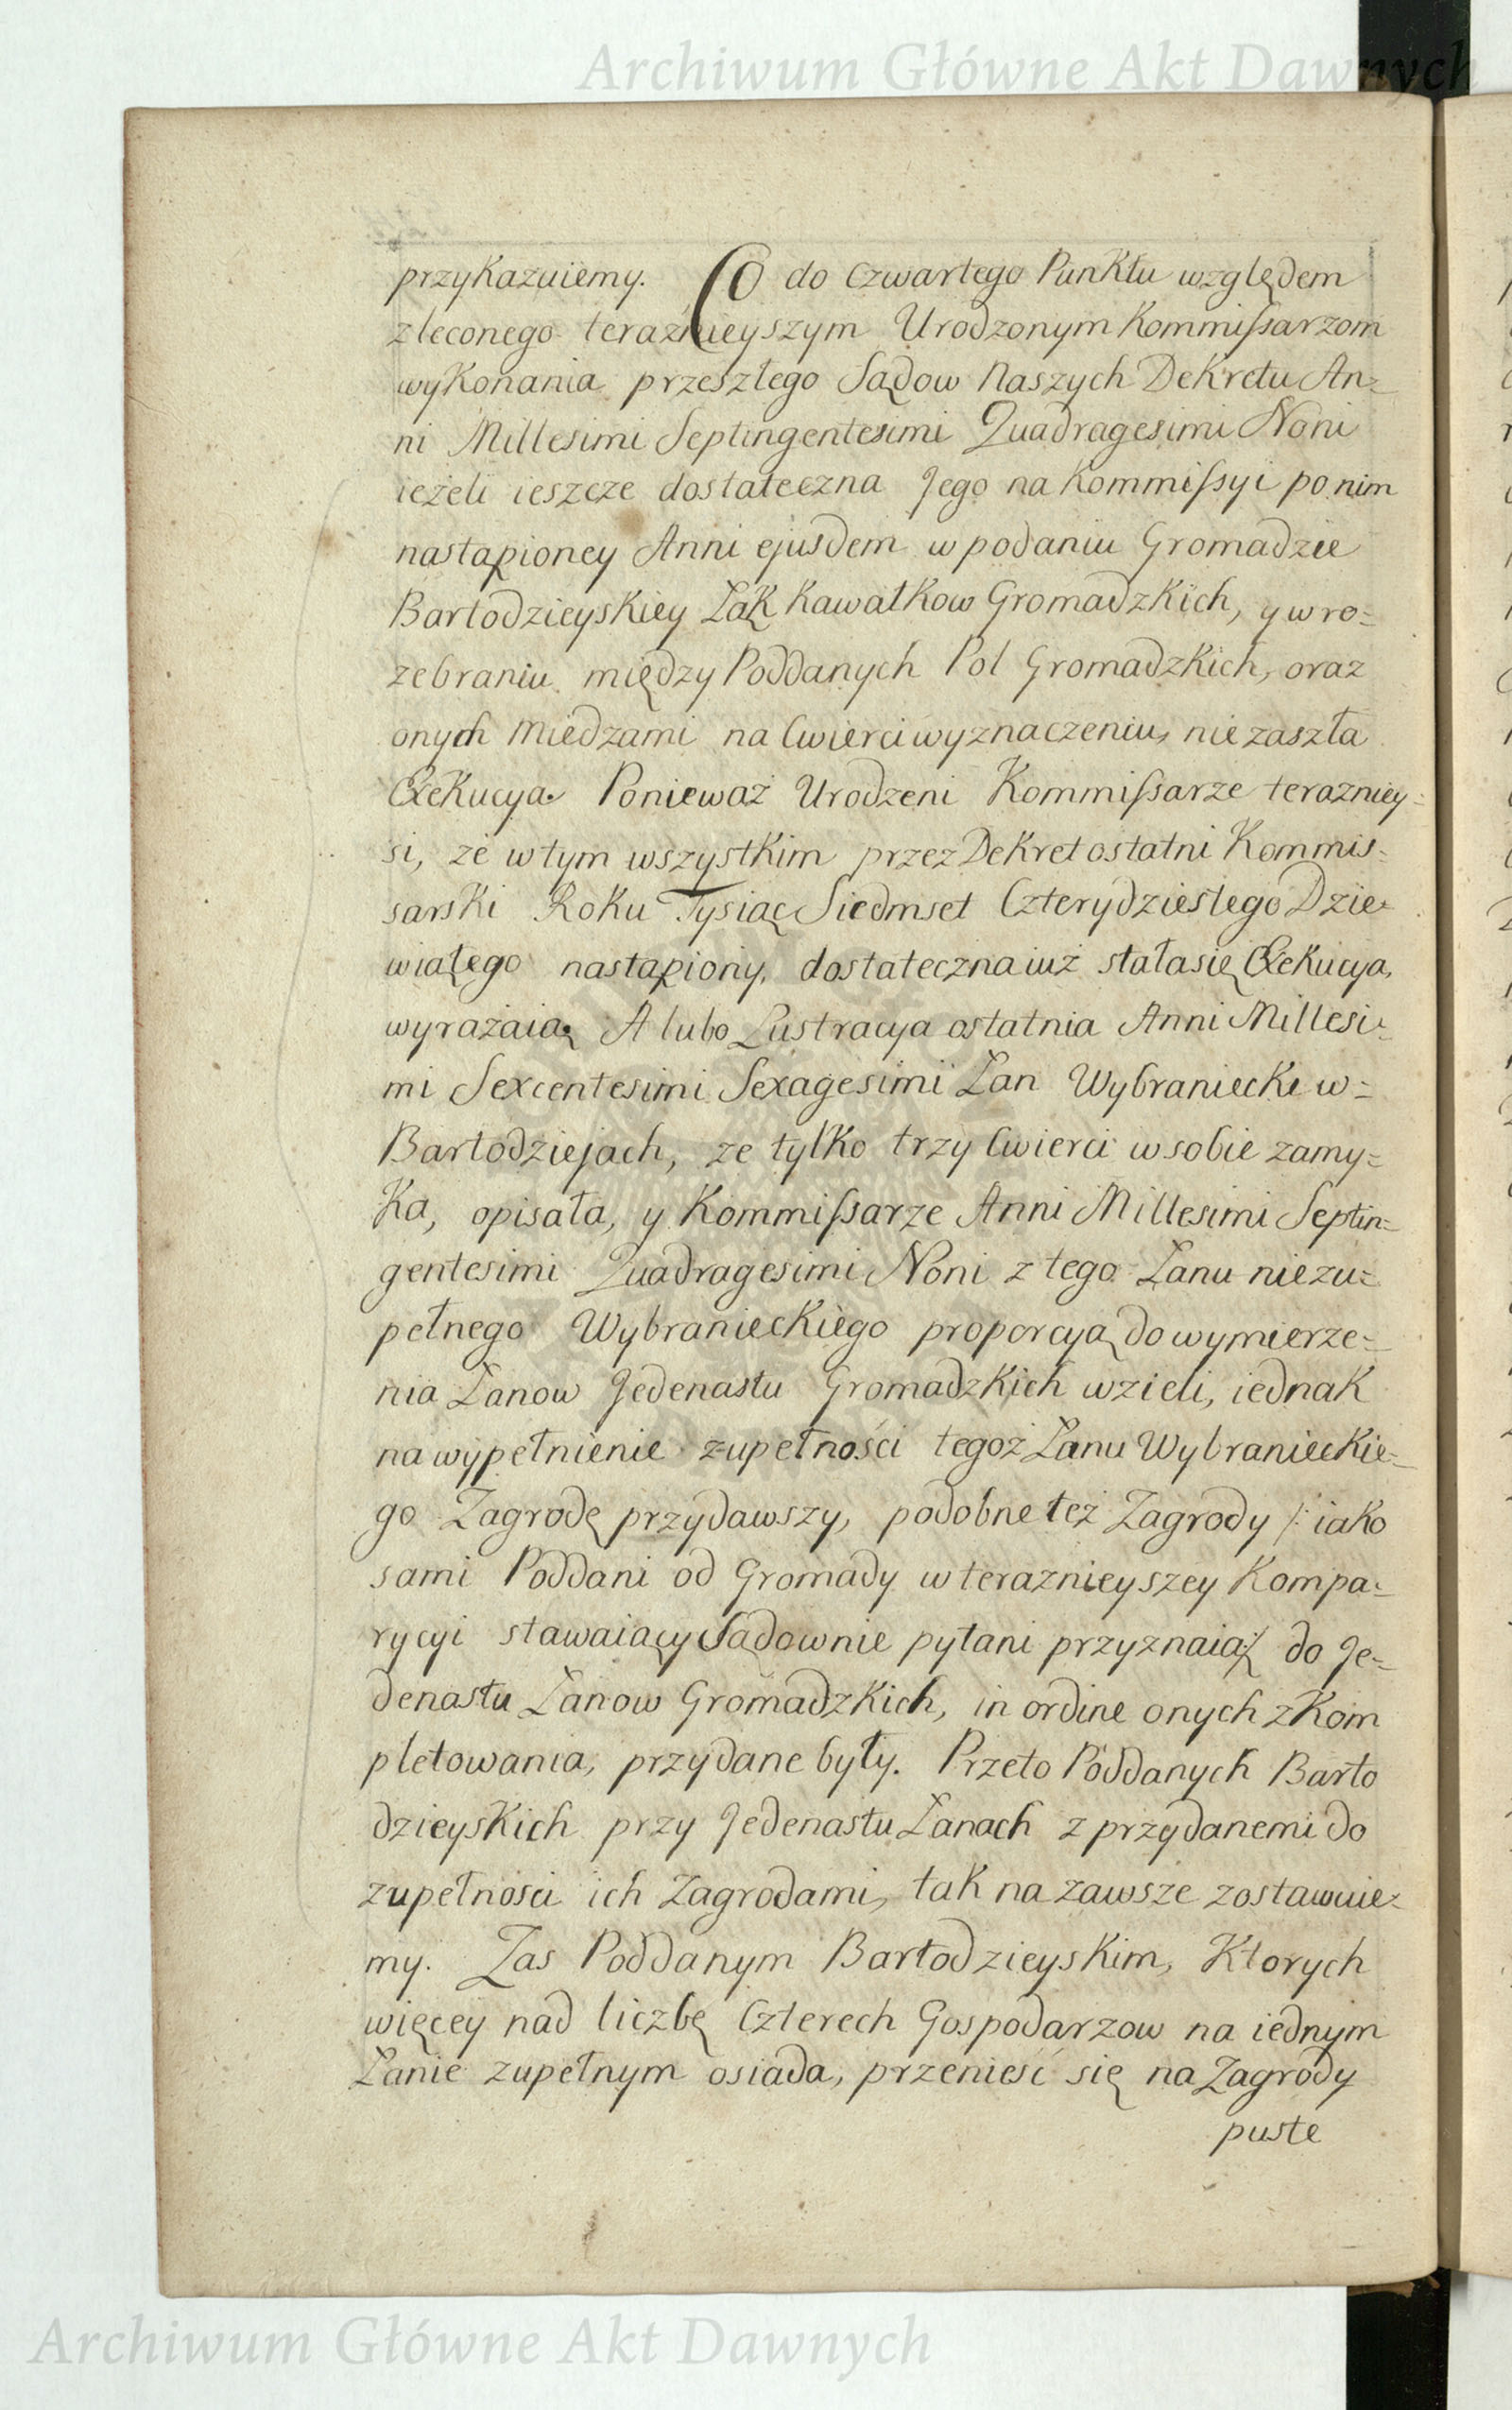 Archiwum Główne Akt Dawnych
przykazuiemy. Co do czwartego Punktu względem
zleconego teraźnieyszym Urodzonym Kommiſsarzom
wykonania przeszłego Sądow Naszych Dekretu An=
ni Millesimi Septingentesimi Quadragesimi Noni
ieżeli ieszcze dostateczna Jego na Kommiſsyi po nim
nastąpioney Anni ejusdem w podaniu Gromadzie
Bartodzieyskiey Łąk Kawałkow Gromadzkich, y w ro=
zebraniu między Poddanych Pol Gromadzkich, oraz
onych Miedzami na Cwierci wyznaczeniu, nie zaszła
Exekucya. Ponieważ Urodzeni Kommiſsarze terazniey=
si, że w tym wszystkim przez Dekret ostatni Kommis=
sarski Roku Tysiąc Siedmset Czterydziestego Dzie=
wiątego nastąpiony, dostateczna iuż stała się Exekucya,
wyrażaią. A lubo Lustracya ostatnia Anni Millesi=
mi Sexcentesimi Sexagesimi Łan Wybraniecki w=
Bartodziejach, ze tylko trzy Cwierci w sobie zamy=
ka, opisała, y Kommiſsarze Anni Millesimi Septin=
gentesimi Quadragesimi Noni z tego Łanu niezu=
pełnego Wybranieckiego proporcyą do wymierze=
nia Łanow Jedenastu Gromadzkich wzieli, iednak
na wypełnienie zupełności tegoż Łanu Wybranieckie=
go Zagrodę przydawszy, podobne też Zagrody /: iako
sami Poddani od Gromady w teraznieyszey Kompa=
rycyi stawaiący Sądownie pytani przyznaią :/ do Je=
denastu Łanow Gromadzkich, in ordine onych zkom
pletowania, przydane były. Przeto Poddanych Barto
dzieyskich przy Jedenastu Łanach z przydanemi do
zupełnosci ich Zagrodami, tak na zawsze zostawuie=
my. Zas Poddanym Bartodzieyskim, Ktorych
więcey nad liczbę Czterech Gospodarzow na iednym
Łanie zupełnym osiada, przenieść się na Zagrody
puste
Archiwum Główne Akt Dawnych